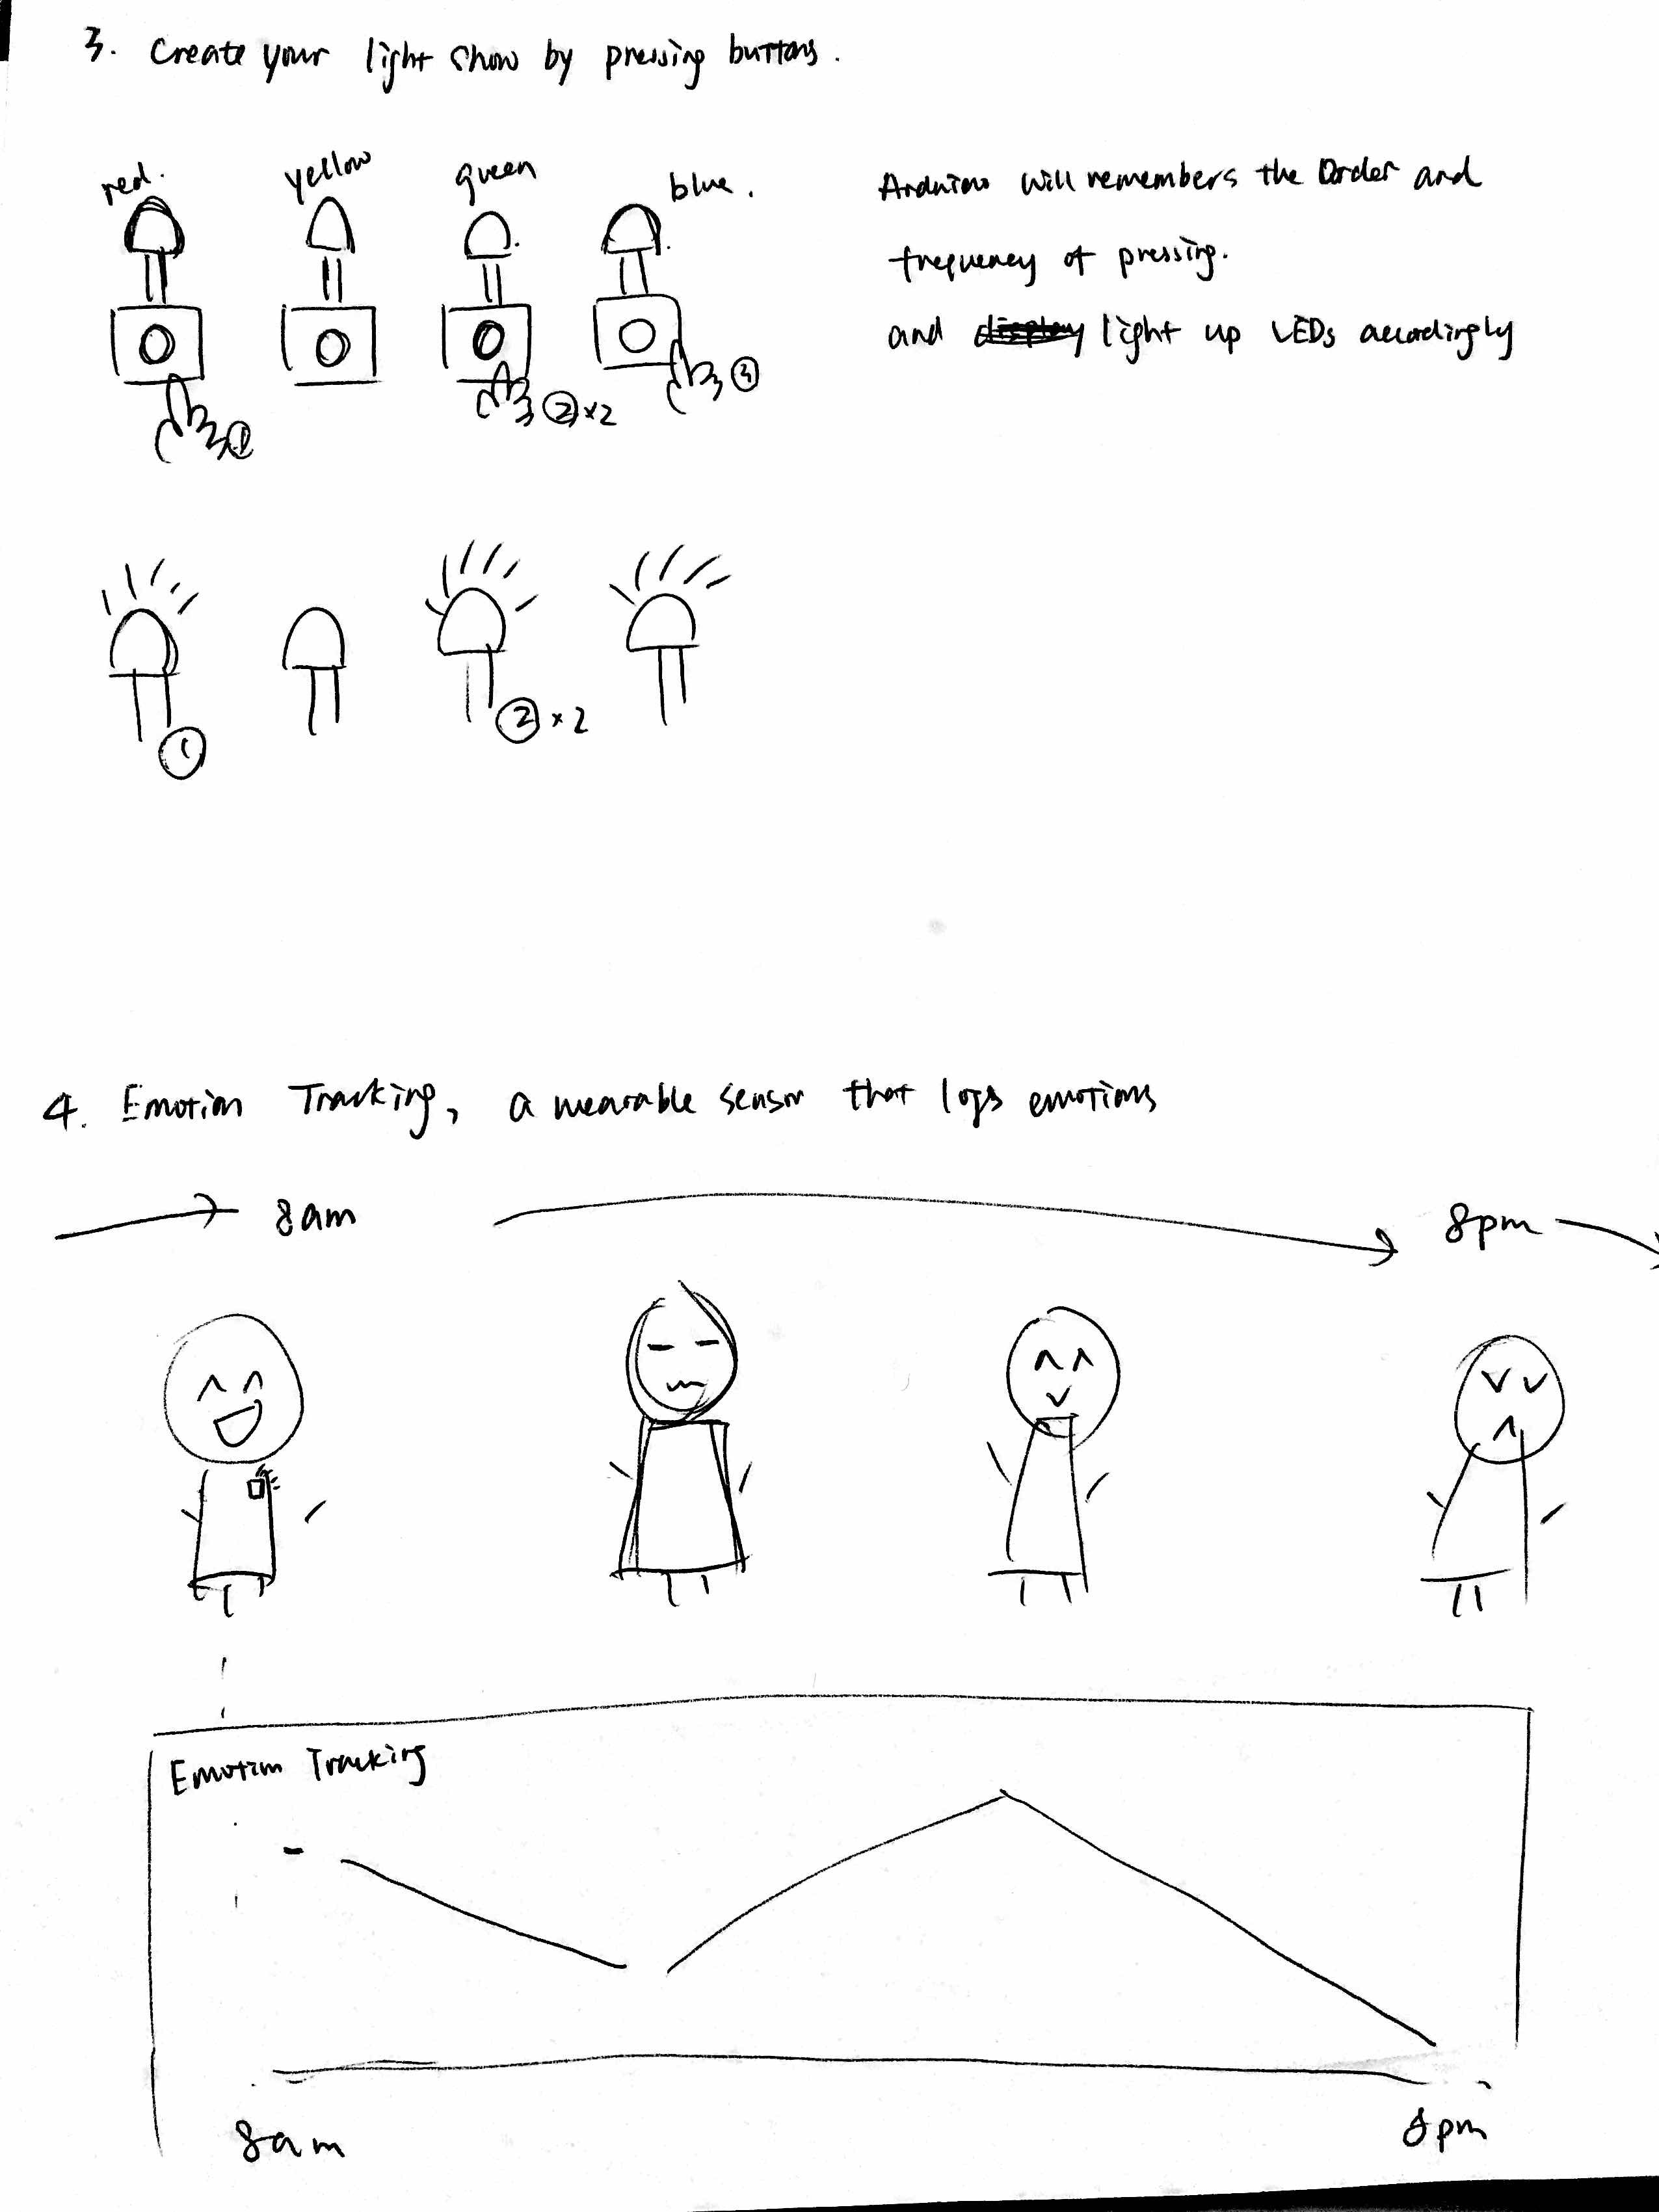 3. Create your light show by pressing buttons.
red. yellow green blue.
Arduino will remembers the Order and
frequency of pressing.
and display light up LEDs accordingly
① ②×2 ③
① ②×2
4. Emotion Tracking, a wearable sensor that logs emotions
8am 8pm
Emotion Tracking
8am 8pm